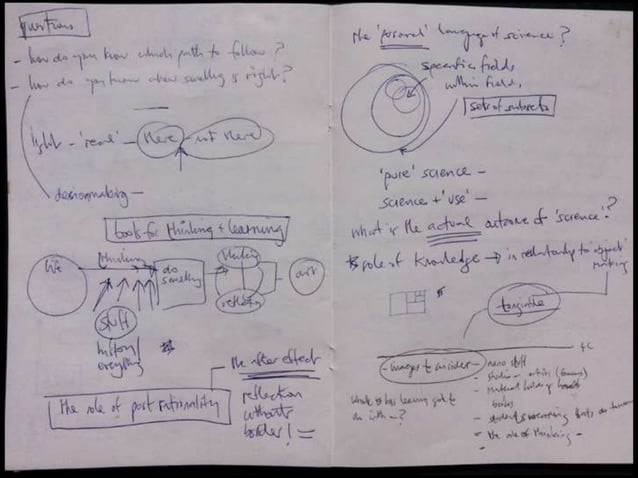 questions
- how do you know which path to follow?
- how do you know when something is right?
light - 'read' - there - not there
decisionmaking -
tools for thinking & learning
life
thinking
do something
thinking
reflection
art
stuff
history/
everything
the after effect
the role of post rationality
reflection
without
border!
the 'personal' language of science?
specific fields
within fields
set of subsets
'pure' science -
science + 'use' -
what is the actual outcome of 'science'?
* role of knowledge → in relationship to 'object'
making
tangible
- images to consider -
- nano stuff
- studio - artists
- material holding
books
- the role of thinking -
what has learning got to
do with - ?